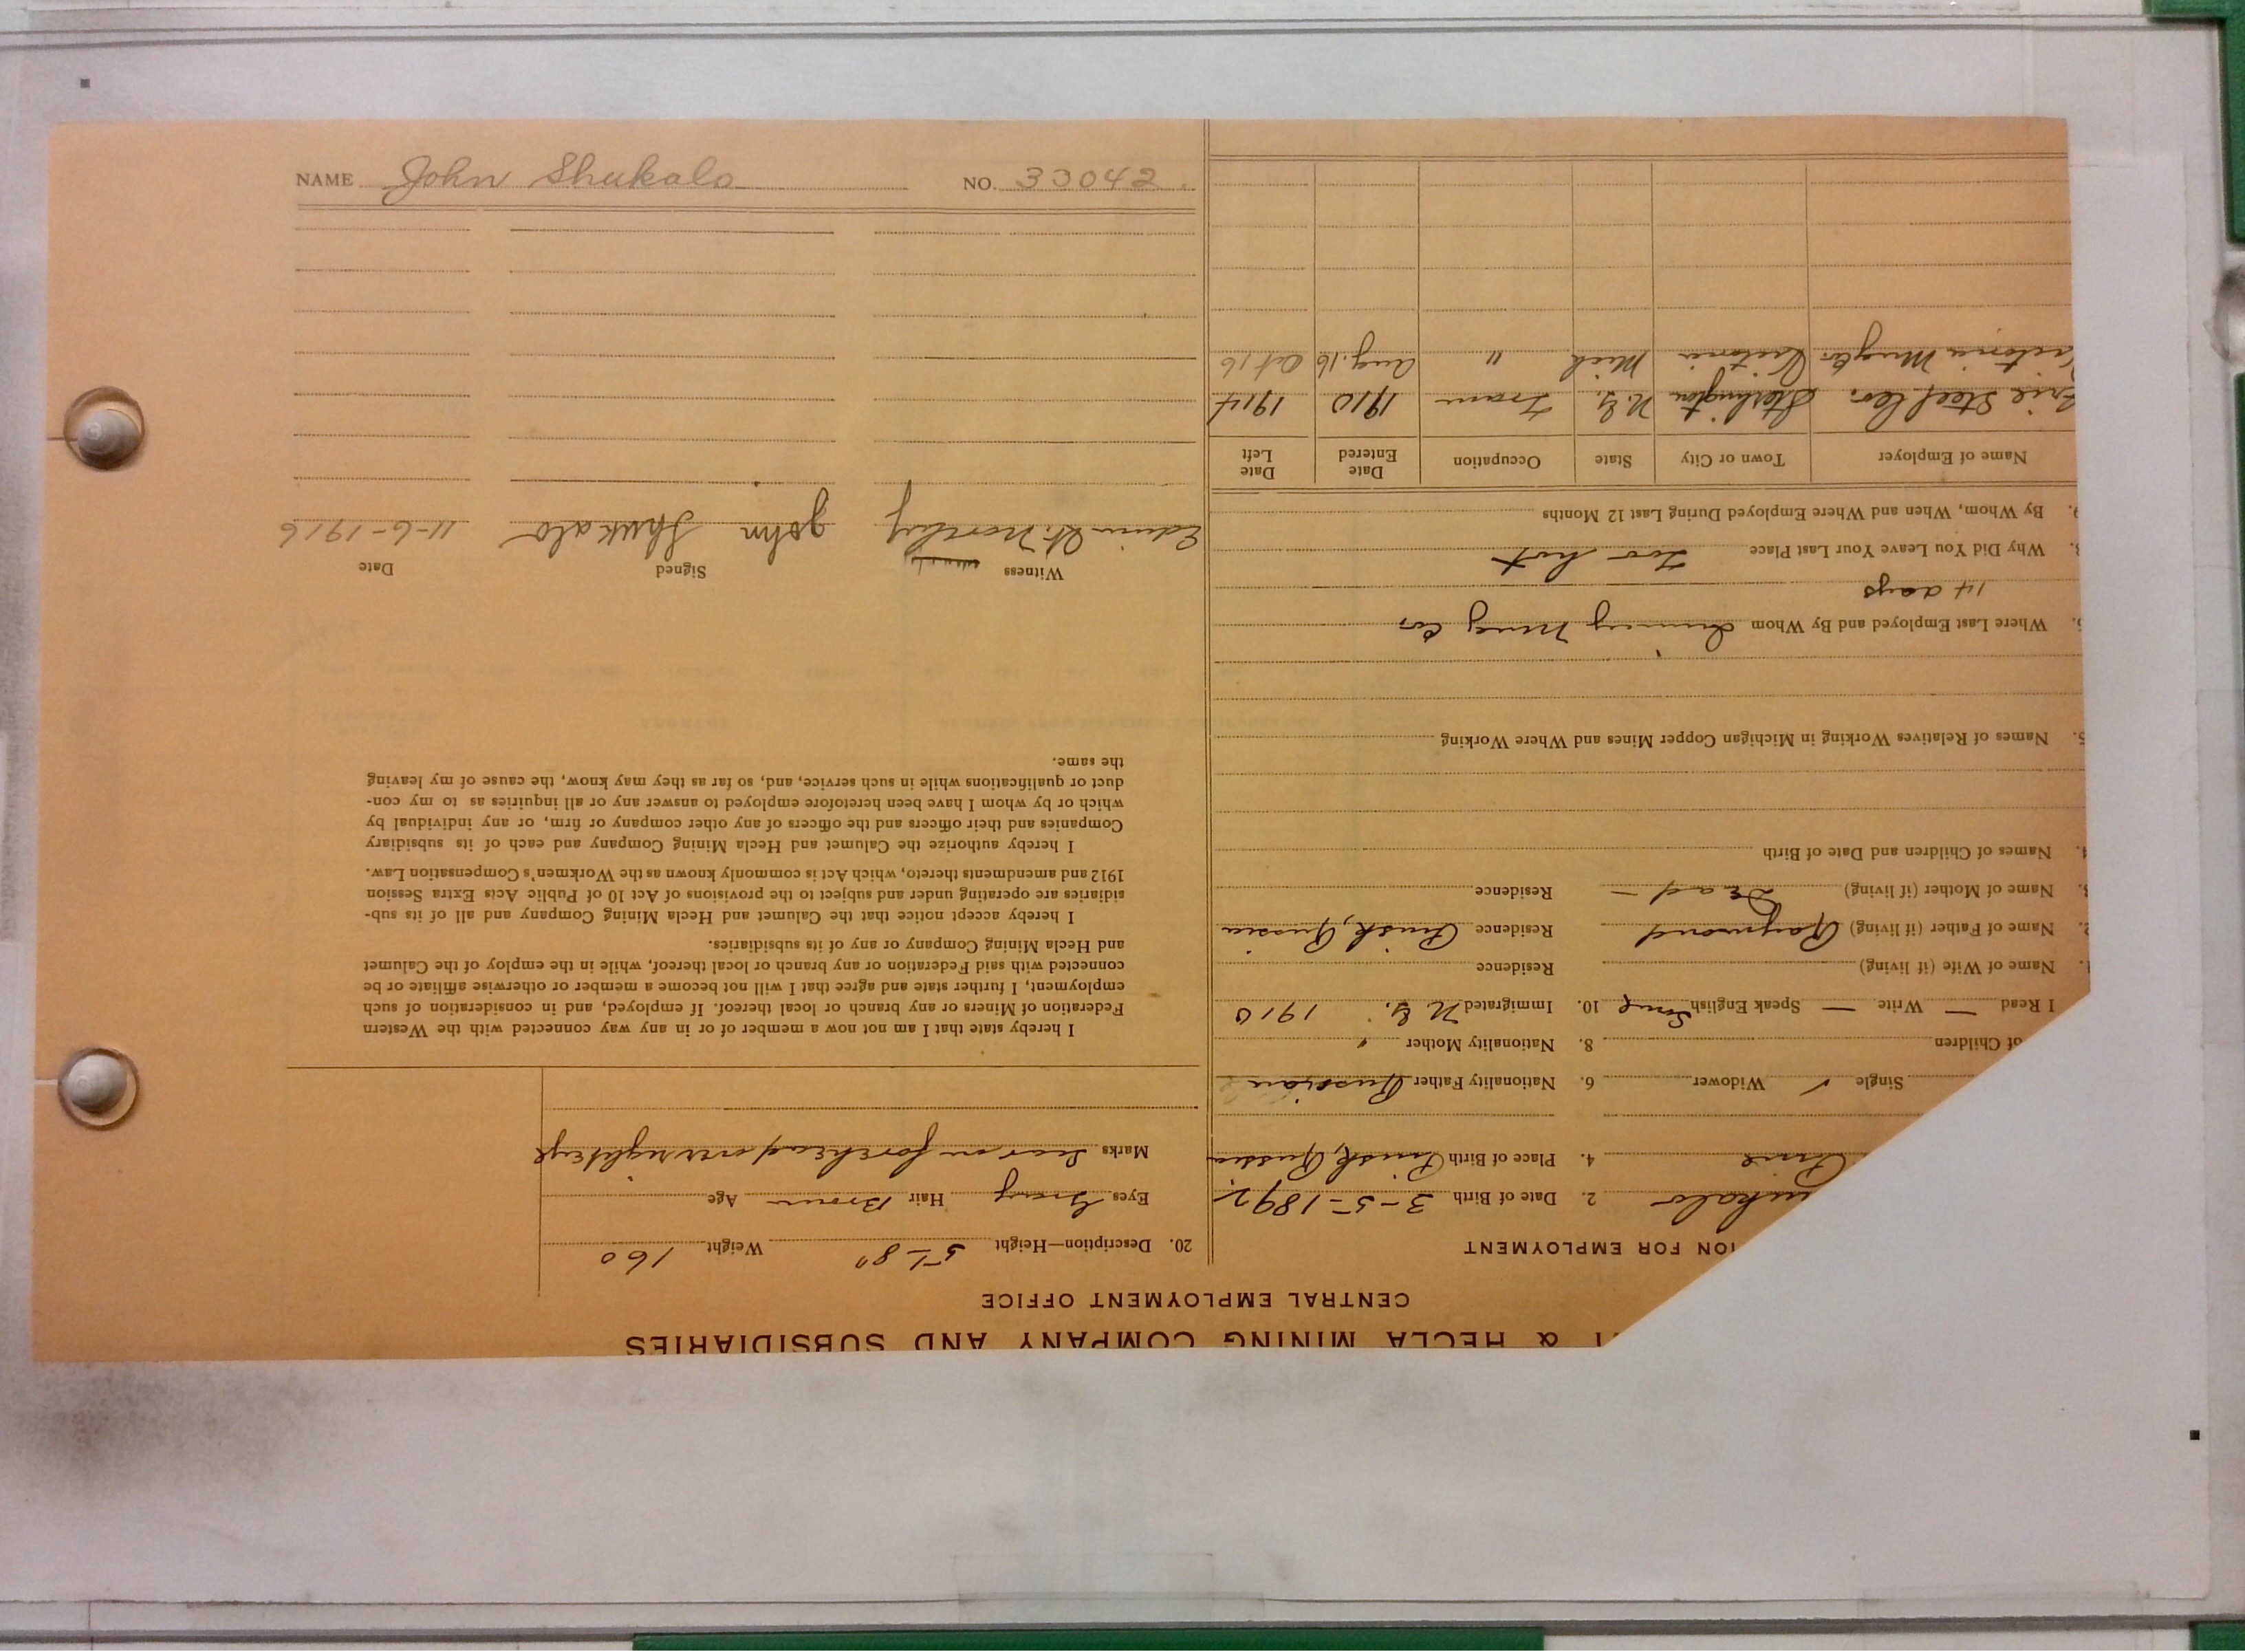 NAME John Shukalo NO. 33042
& HECLA MINING COMPANY AND SUBSIDIARIES
CENTRAL EMPLOYMENT OFFICE
ION FOR EMPLOYMENT
ukalo 2. Date of Birth 3-5-1892
4. Place of Birth Russia
Single ✓ Widower 6. Nationality Father Russian
of Children 8. Nationality Mother "
I Read — Write — Speak English Some 10. Immigrated N.Y. 1910
Name of Wife (if living) Residence
2. Name of Father (if living) Raymond Residence Russia
3. Name of Mother (if living) Dead — Residence
4. Names of Children and Date of Birth
5. Names of Relatives Working in Michigan Copper Mines and Where Working
Where Last Employed and By Whom Co
14 days
Why Did You Leave Your Last Place Too hot
9. By Whom, When and Where Employed During Last 12 Months
Name of Employer Town or City State Occupation Date Entered Date Left
Erie Steel Co. N.Y. Tram 1910 1914
Victoria Mng Co. Victoria Mich " Aug. 16 Oct 16
20. Description—Height 5-8" Weight 160
Eyes Gray Hair Brown Age
Marks Scar on forehead over right eye
I hereby state that I am not now a member of or in any way connected with the Western
Federation of Miners or any branch or local thereof. If employed, and in consideration of such
employment, I further state and agree that I will not become a member or otherwise affiliate or be
connected with said Federation or any branch or local thereof, while in the employ of the Calumet
and Hecla Mining Company or any of its subsidiaries.
I hereby accept notice that the Calumet and Hecla Mining Company and all of its sub-
sidiaries are operating under and subject to the provisions of Act 10 of Public Acts Extra Session
1912 and amendments thereto, which Act is commonly known as the Workmen's Compensation Law.
I hereby authorize the Calumet and Hecla Mining Company and each of its subsidiary
Companies and their officers and the officers of any other company or firm, or any individual by
which or by whom I have been heretofore employed to answer any or all inquiries as to my con-
duct or qualifications while in such service, and, so far as they may know, the cause of my leaving
the same.
Witness Signed Date
Edwin John Shukalo 11-6-1916